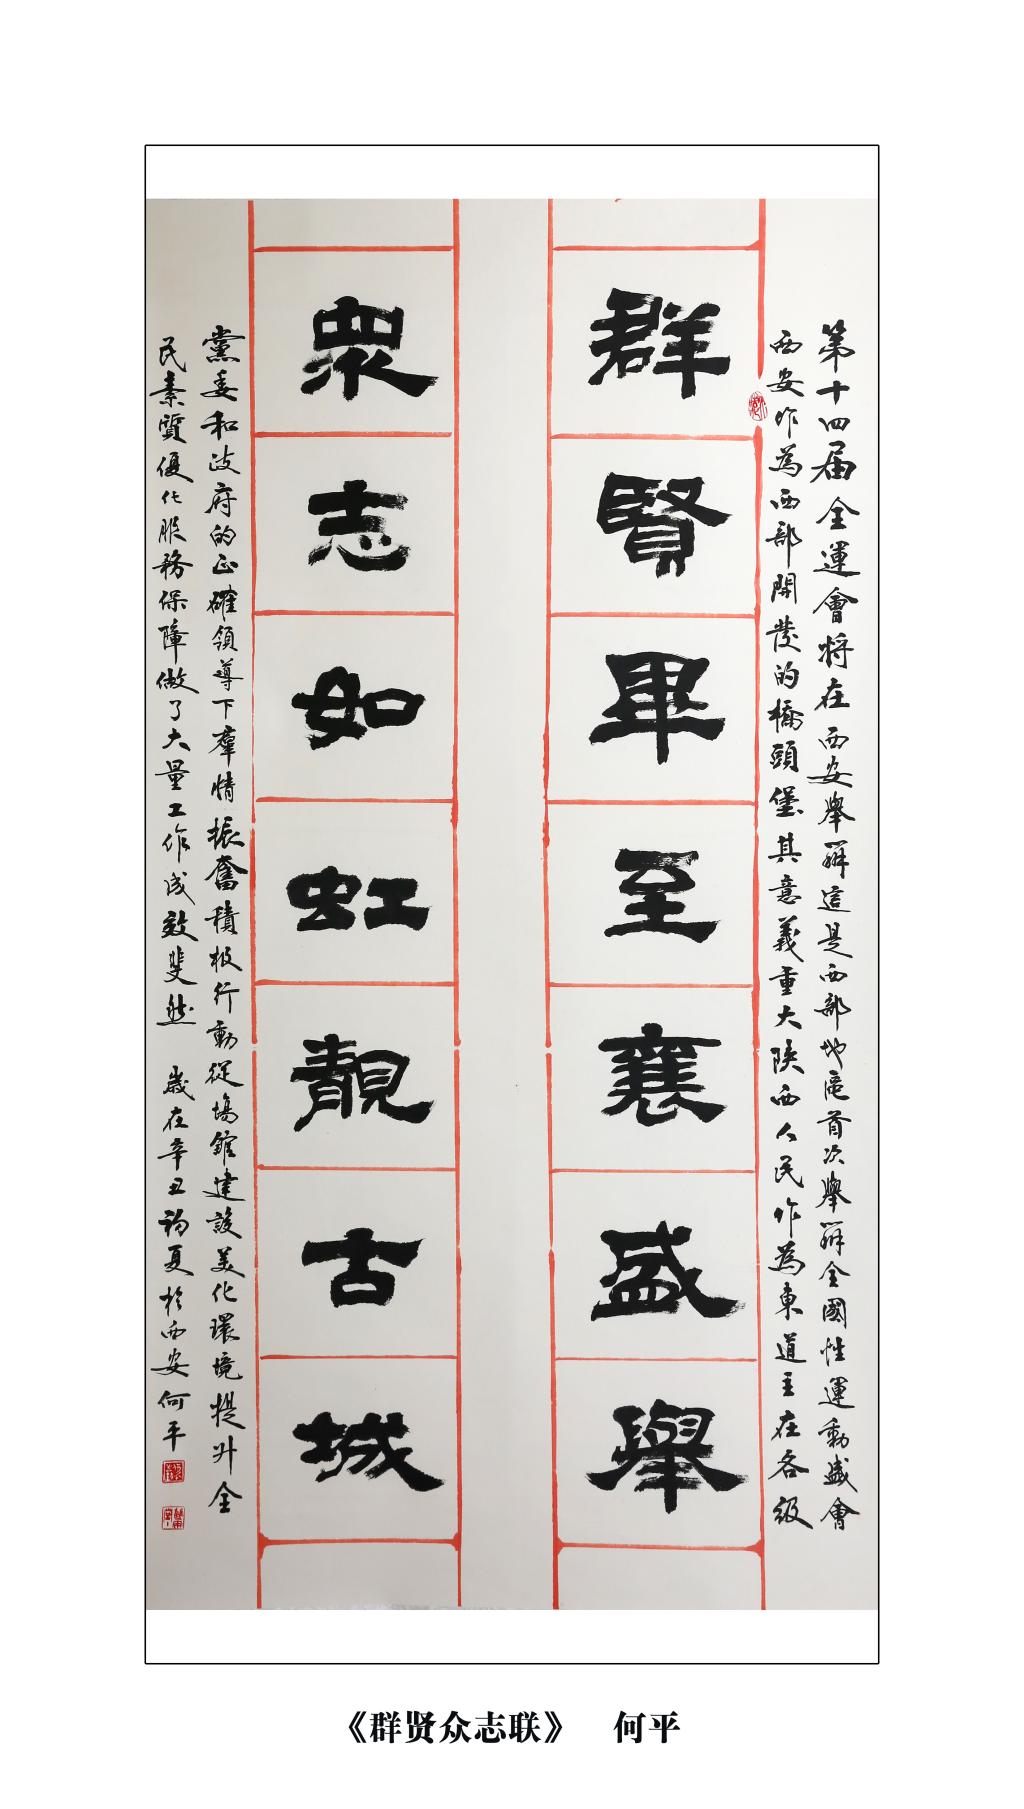 第十四届全運會将在西安舉辦這是西部地區首次舉辦全國性運動盛會
西安作為西部開發的橋頭堡其意義重大陝西人民作為東道主在各級
群賢畢至襄盛舉
眾志如虹靚古城
黨委和政府的正確領導下羣情振奮積极行動從場館建設美化環境提升全
民素質優化服務保障做了大量工作成效斐然 歲在辛丑初夏於西安何平
《群贤众志联》 何平